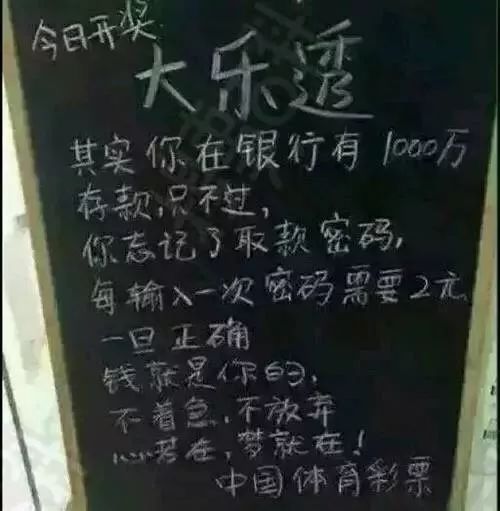 今日开奖
大乐透
其实你在银行有1000万
存款,只不过,
你忘记了取款密码,
每输入一次密码需要2元
一旦正确
钱就是你的,
不着急,不放弃
心若在,梦就在!
中国体育彩票